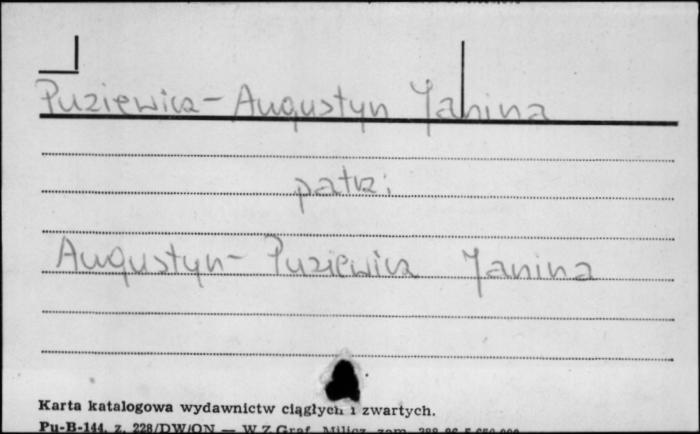 Puziewicz-Augustyn Janina
patrz:
Augustyn-Puziewicz Janina
Karta katalogowa wydawnictw ciągłych i zwartych.
Pu-B-144, z. 228/DW/ON — W.Z.Graf. Milicz, zam.